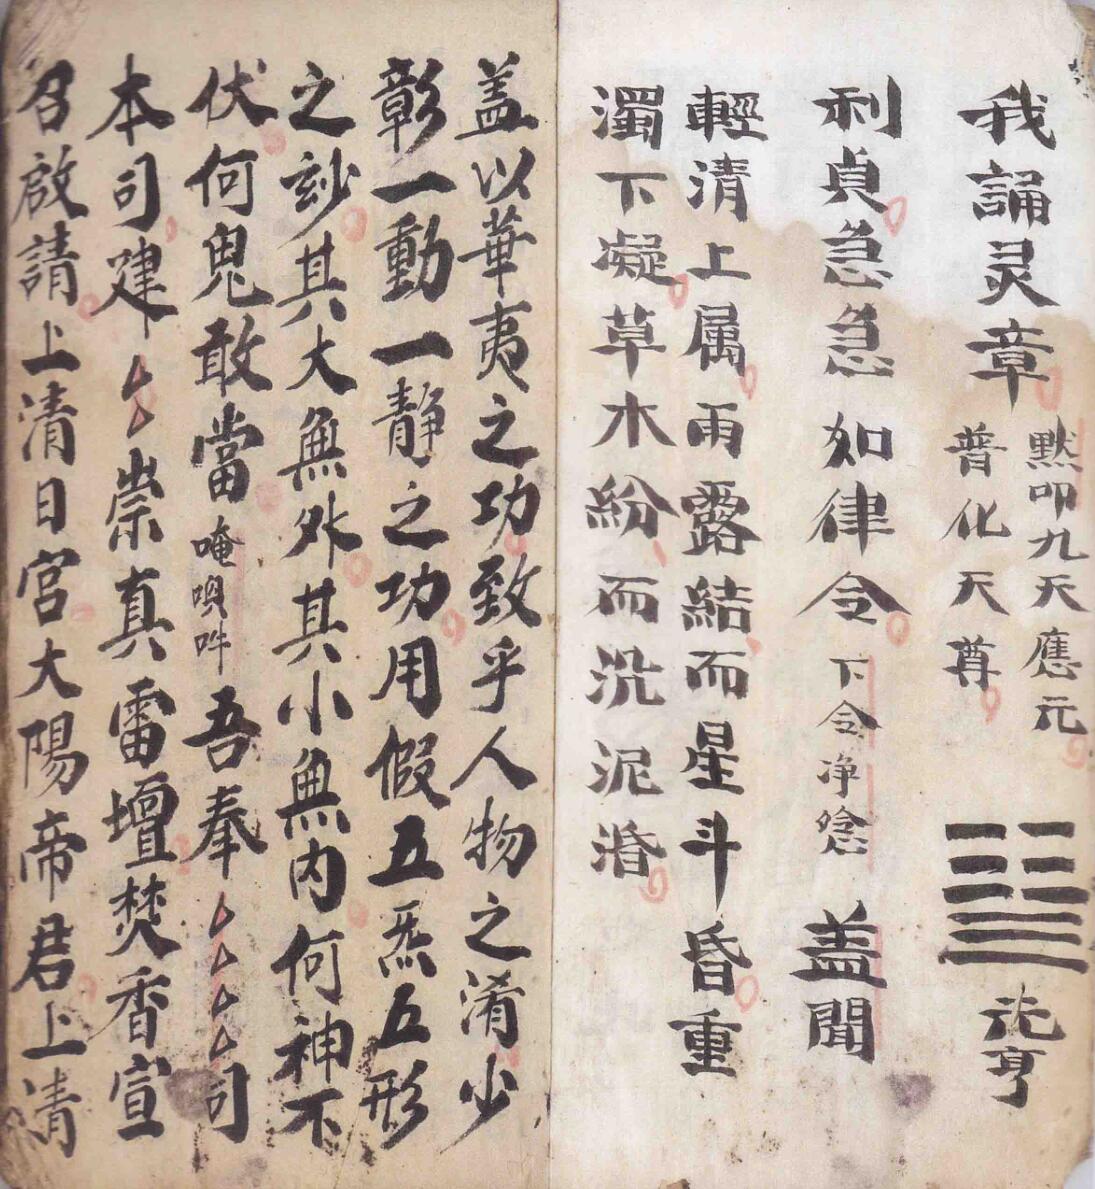 我誦灵章 默叩九天應元
普化天尊 ䷊ 元亨
利貞急急如律令 下令净唸 盖聞
輕清上属雨露結而星斗昏重
濁下凝草木紛而沉泥湣
盖以華夷之功致乎人物之淆少
彰一動一静之功用假五炁五形
之玅其大無外其小無内何神不
伏何鬼敢當 唵唄吽 吾奉厶厶厶厶司
本司建厶厶崇真雷壇焚香宣
召啟請上清日宮大陽帝君上清